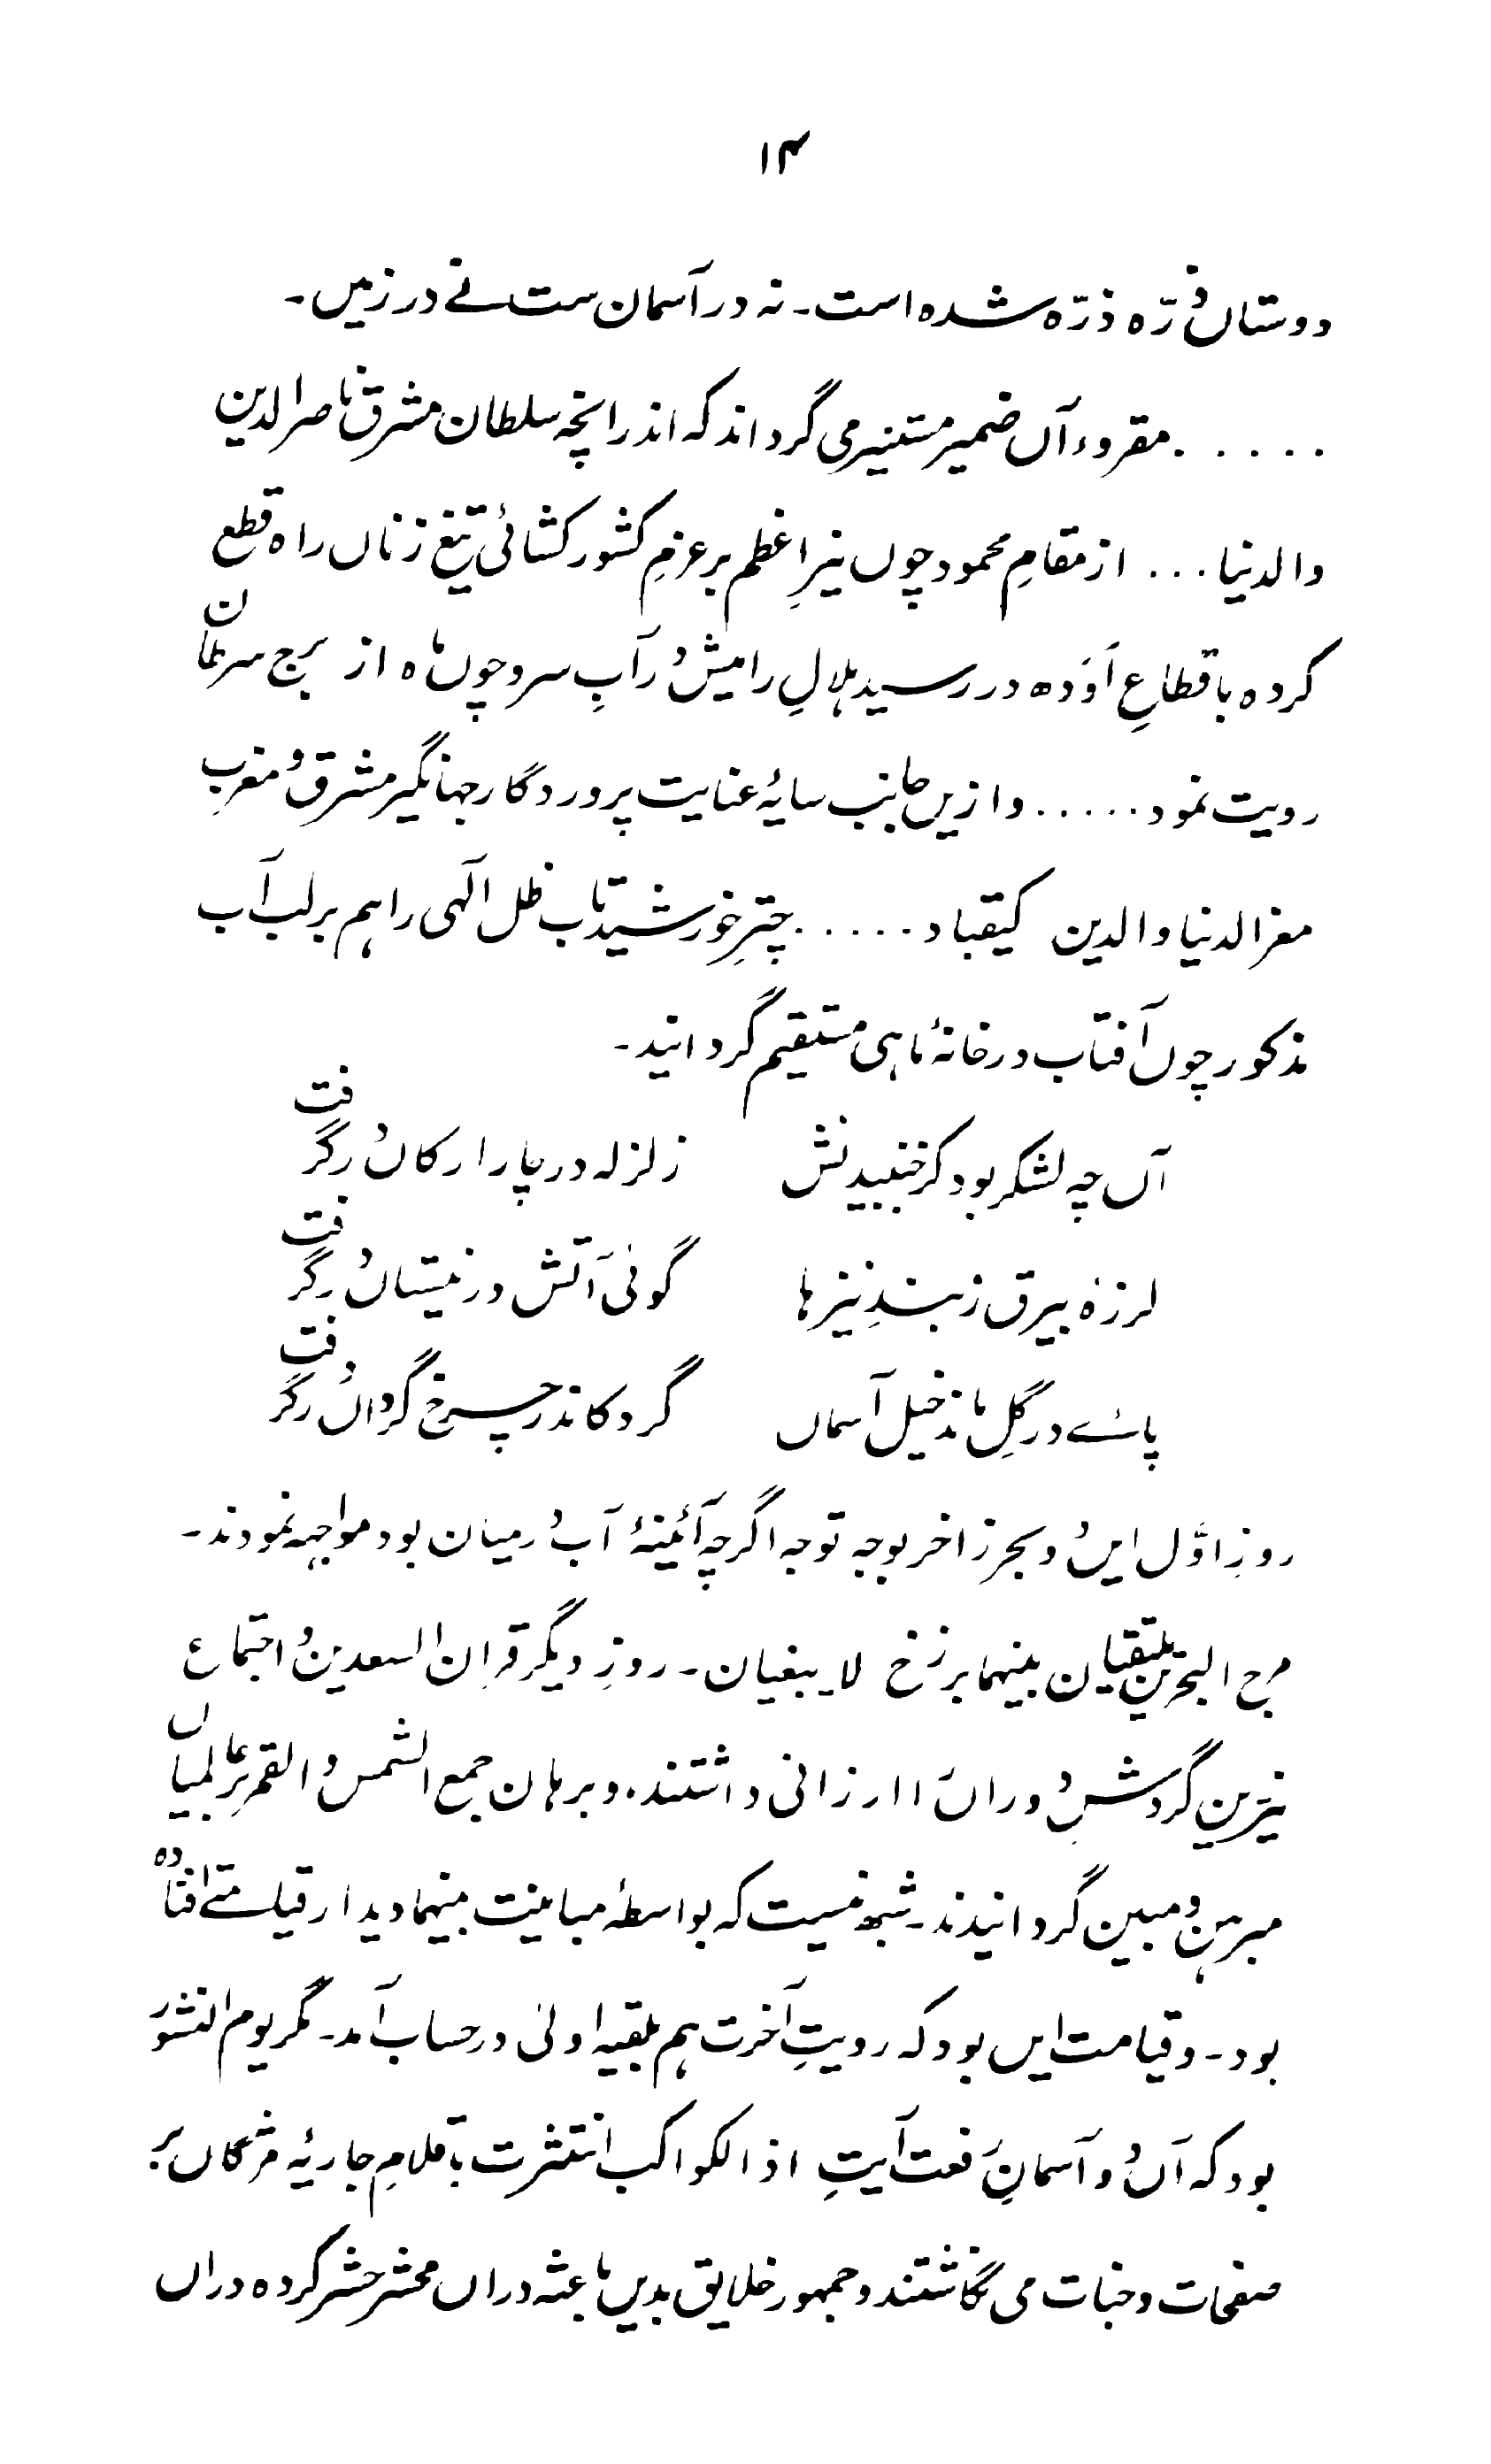 ۱۴
دوستاں ذرّہ ذرّہ شدہ است۔ نہ در آسمان ست نے در زمیں۔
. . . . . مقروء آں ضمیر مستنیر می گرداند کہ اندرانچہ سلطان مشرق ناصر الدین
والدنیا ... از مقامِ محمود چوں نیّرِ اعظم بر عزمِ کشور کشائی تیغ زناں راہ قطع
کردہ باقطاعِ اَوَدھ در رسید ہلالِ رامیش در آبِ سرو چوں ماہ از برج سرطان
رویت نمود ..... و ازیں جانب سایۂ عنایت پروردگار جہانگیر مشرق و مغرب
معز الدنیا والدین کیقباد ..... چترِ خورشید تاب ظل الٰہی را ہم بر لب آب
مذکور چوں آفتاب در خانۂ ماہی مستقیم گردانید۔
آں چہ لشکر بود کز جنبیدنش زلزلہ در چار ارکاں در گرفت
لرزہ بیرق ز بندِ نیزہا گوئی آتش در نیستاں در گرفت
پائے در گلِ ماند خیل آسماں گرد کاندر چرخ گرداں در گرفت
روزِ اوّل ایں دو بحر زاخر بوجہ توجہ اگرچہ آئینۂ آب در میان بود مواجہہ نمودند۔
مرج البحرین یلتقیان بینہما برزخ لا یبغیان۔ روزِ دیگر قران السعدین و اجتماع
نیّرین گردشِ دوراں را ارزانی داشتند۔ و برہان جمع الشمس و القمر بر عالمیاں
مبرہن و مبین گردانیدند۔ شبہ نیست کہ بواسطۂ مباینت بینہما دیدار قیامتے افتادہ
بود۔ و قیامت ایں بود کہ رویتِ آخرت ہم بلقیہ اولیٰ در حساب آمد۔ مگر یوم النشور
بود کہ آں دو آسمانِ رفعت آیتِ اذا الکواکب انتثرت باقلامِ جاریۂ مژگاں بر
صفحات وجنات می نگاشتند و جمہور خلایق بدیں باعثہ دراں محشر حشر کردہ دراں